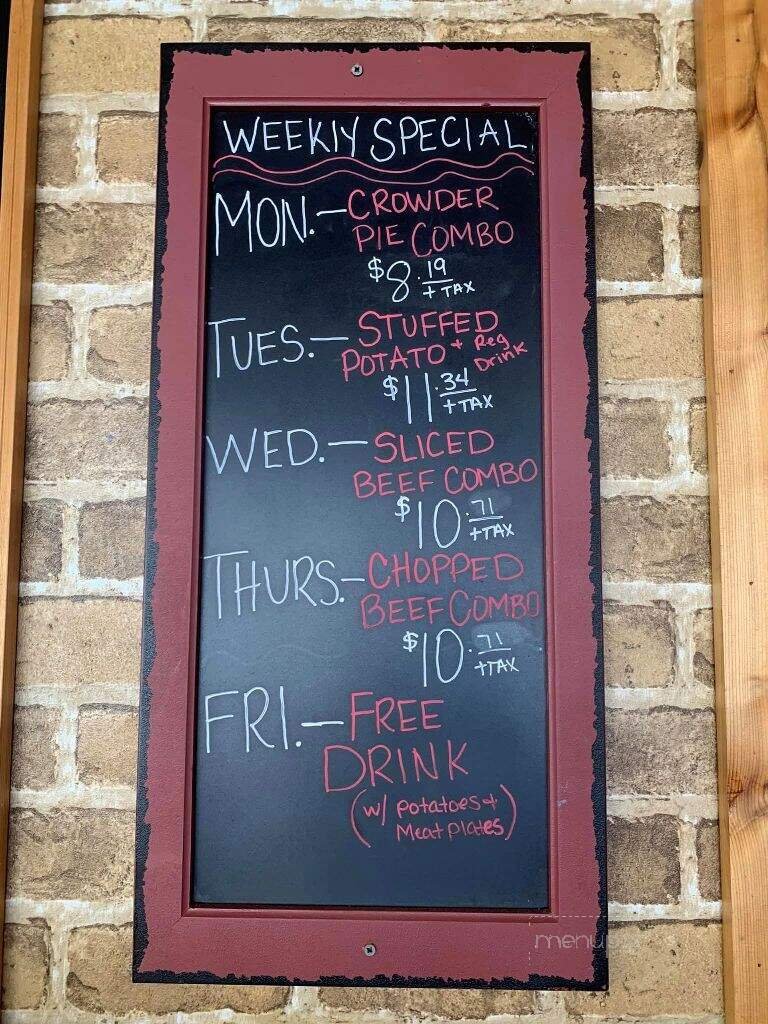 WEEKLY SPECIAL
MON.- CROWDER
PIE COMBO
$8.19
+ TAX
TUES.- STUFFED
POTATO + Reg
Drink
$11.34
+ TAX
WED.- SLICED
BEEF COMBO
$10.71
+TAX
THURS.- CHOPPED
BEEF COMBO
$10.71
+TAX
FRI.- FREE
DRINK
(w/ potatoes +
Meat plates)